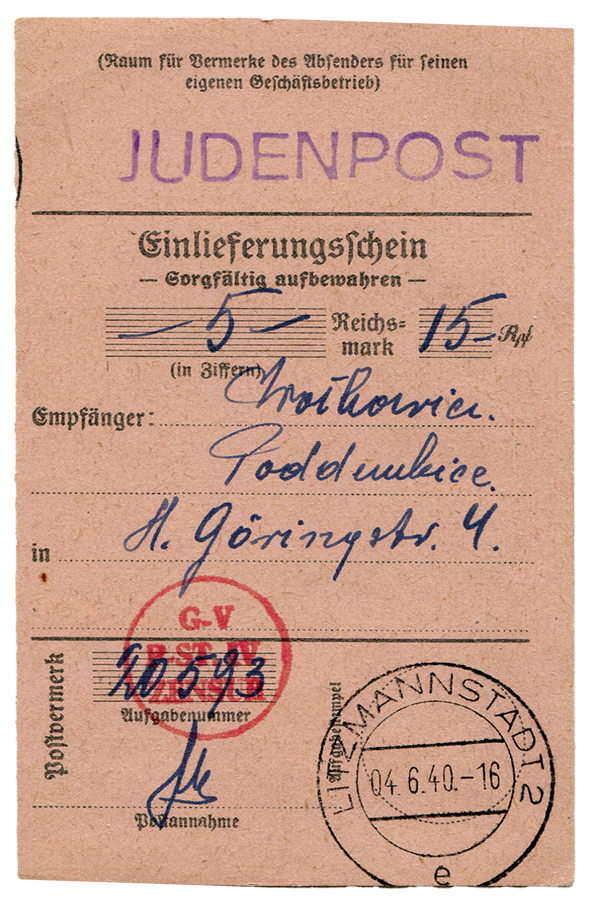 (Raum für Vermerke des Absenders für seinen
eigenen Geschäftsbetrieb)
JUDENPOST
Einlieferungsschein
— Sorgfältig aufbewahren —
— 5 — Reichs= mark 15 Rpf
(in Ziffern)
Empfänger:
Poddembice.
in H. Göringstr. 4.
G-V
P-ST. IV
ZENSUR
20593
Aufgabenummer
Postvermerk
Postannahme
Aufgabestempel
LITZMANNSTADT 2
04.6.40.-16
e